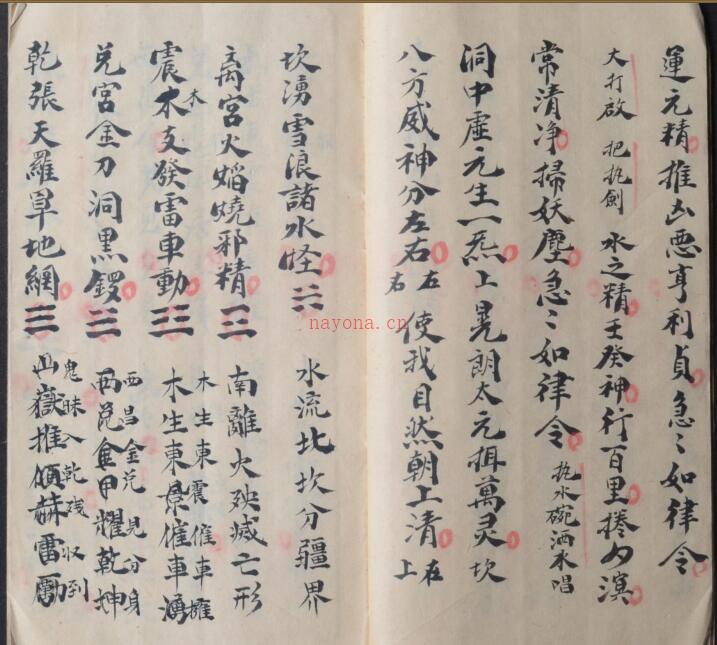 運元精推凶惡亨利貞急〻如律令
大打啟 把执劍 水之精壬癸神行百里捲山溟
常清净掃妖塵急〻如律令 执水碗洒水唱
洞中虛元生一炁上晃朗太元揖萬灵坎
八方威神分左右左右 使我目然朝上清右上
坎湧雪浪諸水怪☵ 水流北坎分疆界
離宮火焰燒邪精☲ 南離火殃滅亡形
震木支發雷車動 木生東震催車擁
木 木生東景催車湧
兌宮金刀洞黑鑼 西昌金兑見分身
西兌金甲耀乾坤
乾張天羅草地網☰ 鬼昧入乾残收到
凶嶽推傾赫雷勵
nayona.cn